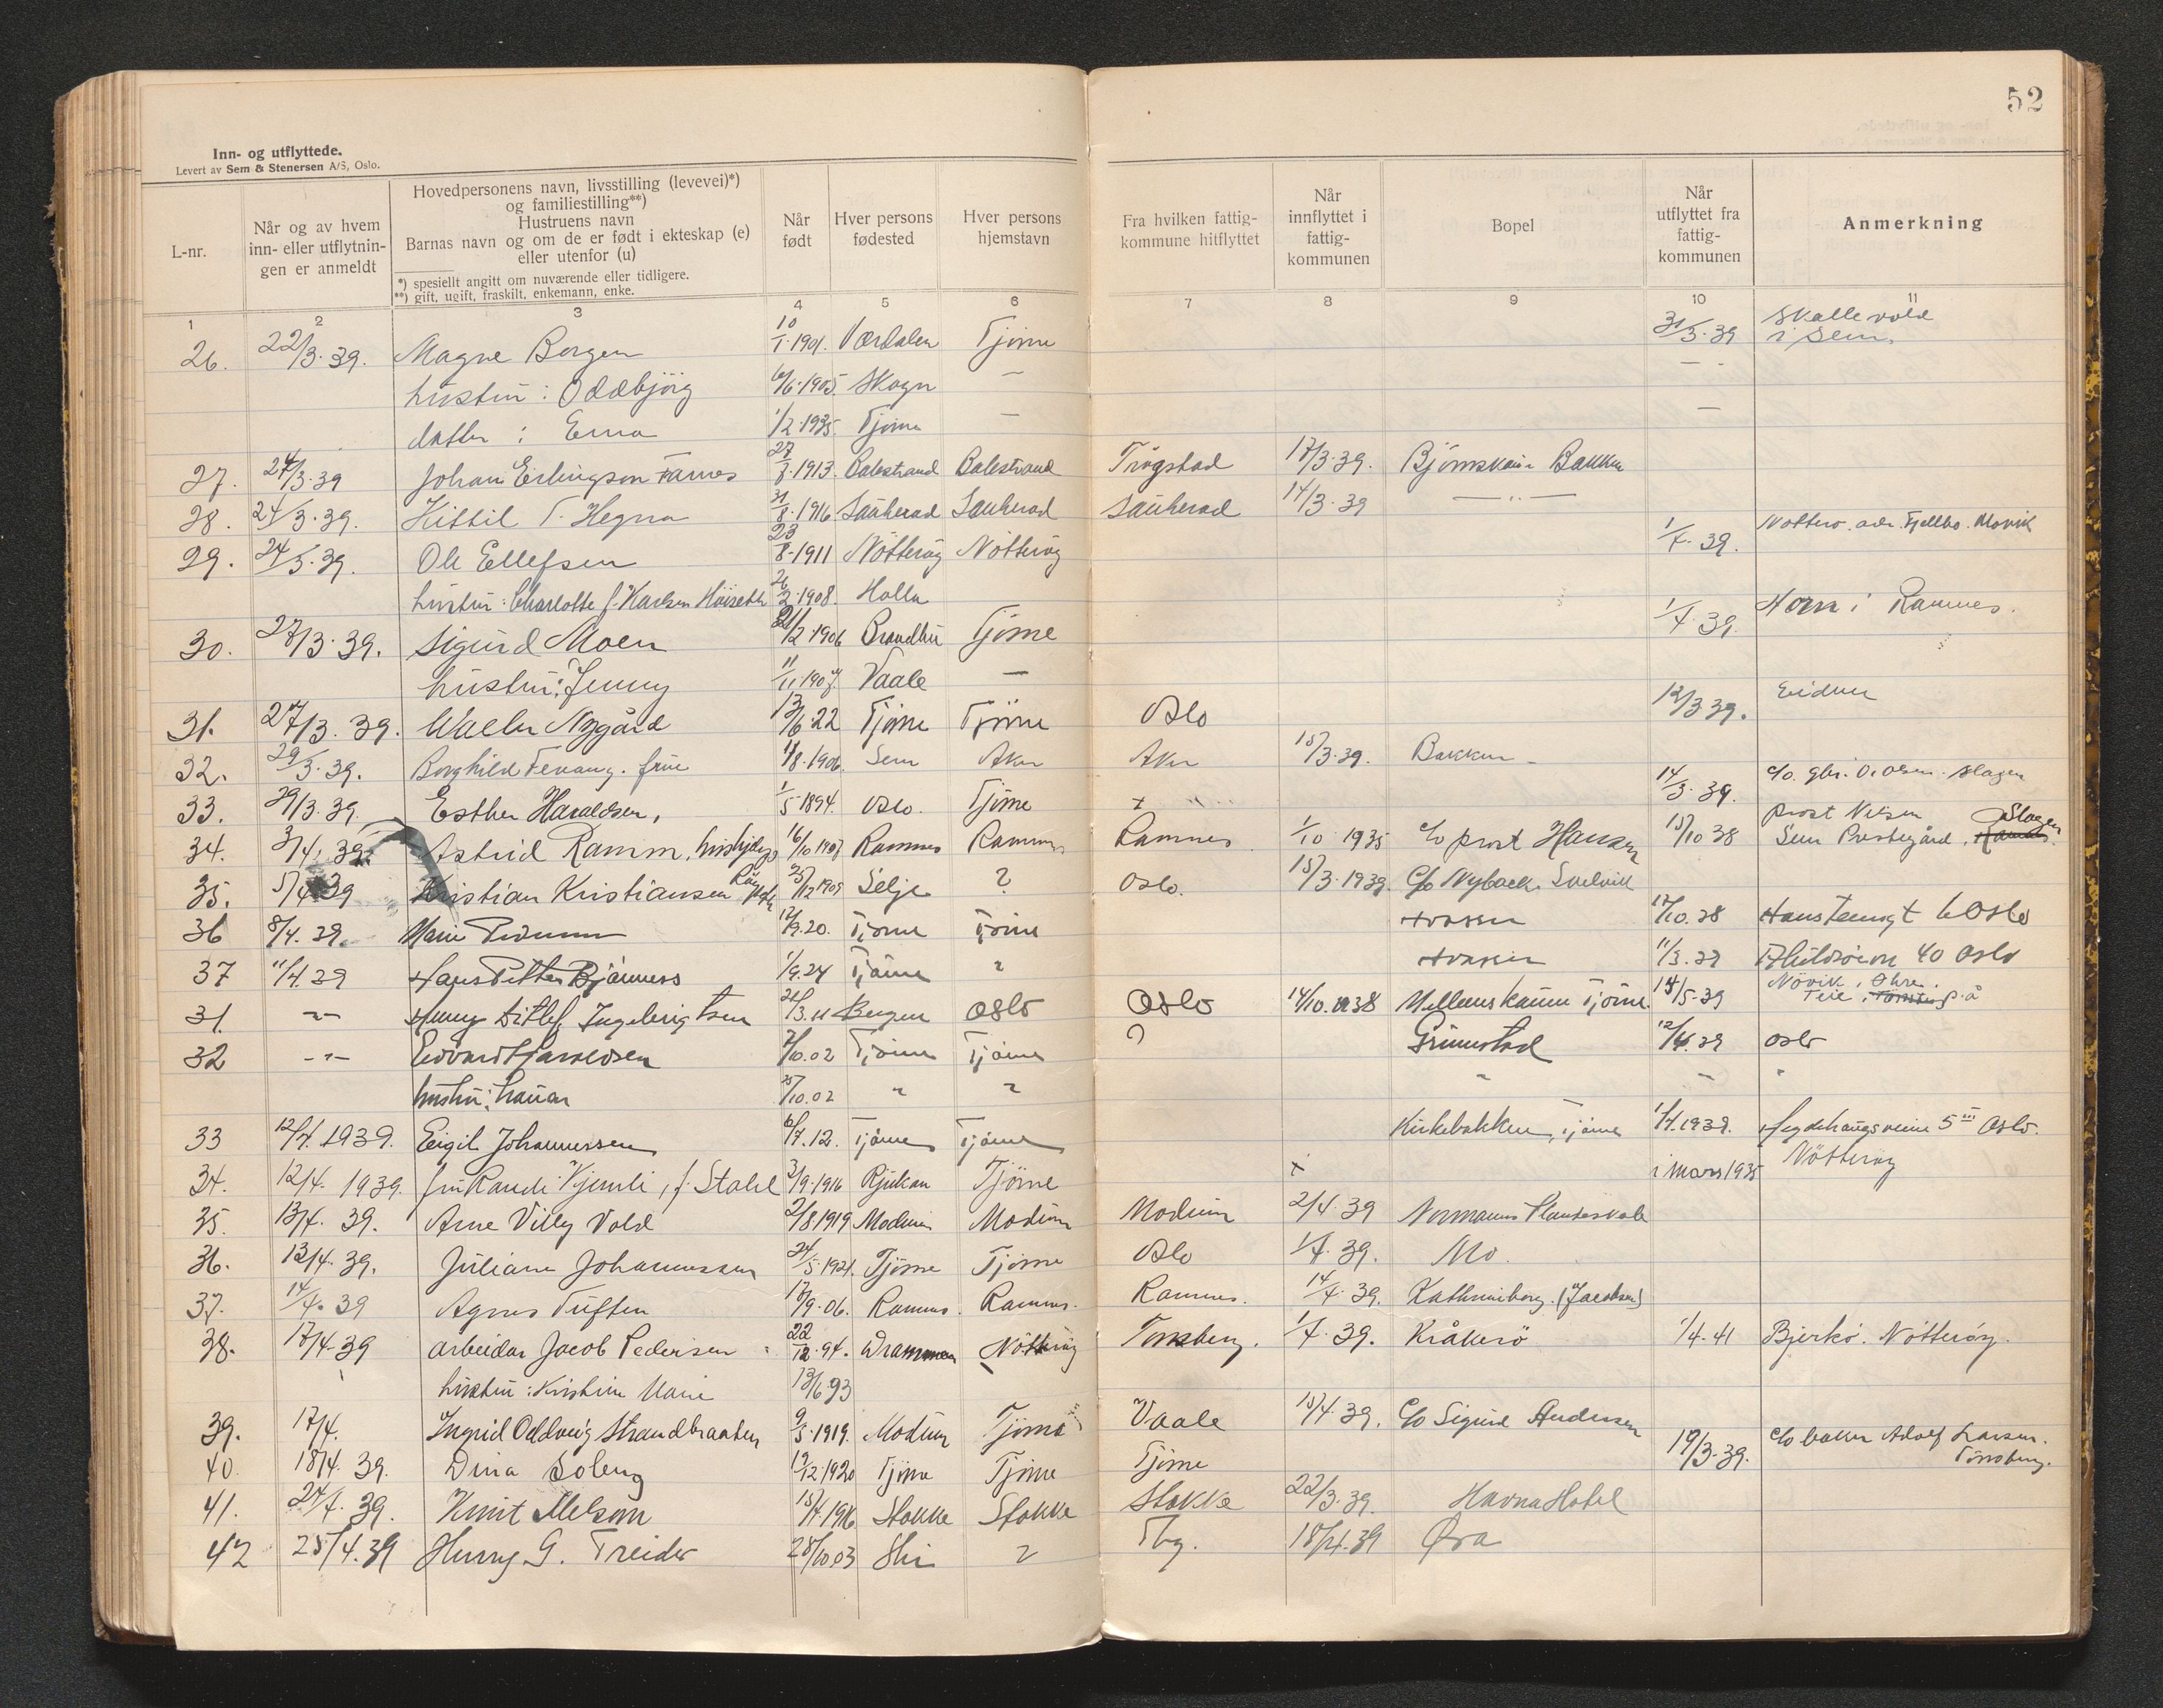 52
Inn- og utflyttede.
Levert av Sem & Stenersen A/S, Oslo.
L-nr.
Når og av hvem inn- eller utflytnin- gen er anmeldt
Hovedpersonens navn, livsstilling (levevei)*) og familiestilling**)
Hustruens navn
Barnas navn og om de er født i ekteskap (e) eller utenfor (u)
*) spesiellt angitt om nuværende eller tidligere.
**) gift, ugift, fraskilt, enkemann, enke.
Når født
Hver persons fødested
Hver persons hjemstavn
Fra hvilken fattig- kommune hitflyttet
Når innflyttet i fattig- kommunen
Bopel
Når utflyttet fra fattig- kommunen
Anmerkning
1 2 3 4 5 6 7 8 9 10 11
26. 22/3.39. Magne Borgen 10/1.1901. Værdalen Tjöme 31/3.39 Skallevold i Sem.
hustru: Oddbjörg 6/6.1905. Skogn — —
datter: Erna 1/2.1935. Tjöme — —
27. 24/3.39 Johan Erlingson Farnes 1913. Balestrand Balestrand Trögstad 17/3.39. Bakken
28. 24/3.39. Kittil T. Hegna 31/8.1916 Sauherad Sauherad Sauherad 14/3.39 —"—
29. 24/3.39. Ole Ellefsen 23/8-1911 Nötteröy Nötteröy 1/4.39. Nötterö. adr. Fjellbo.
hustru: Charlotte f. Karlsen 26/2.1908. Holla
30. 27/3.39. Sigurd Moen 21/2.1906 Brandbu Tjöme 1/4.39. i Ramnes.
hustru: Jenny 11/11.1907. Vaale —
31. 27/3.39. Nygård 13/6.22 Tjöme Tjöme Oslo 12/3 39. Eidene
32. 29/3.39. Borghild Fevang. frue 11/8.1906. Sem Aker Aker 15/3.39. Bakken
33. 29/3.39. Esther Haraldsen, 1/5.1894. Oslo. Tjöme + 14/3.39. c/o. Gbr. O. Olsen. Slagen
34. 3/4.39. Astrid Ramm, 16/10 1907 Ramnes Ramnes Ramnes 1/10 1935 c/o prost Hansen 15/10 38 prost Nilsen Sem Prestegård, Slagen
35. 5/4 39 Kristian Kristiansen 25/12 1909 Selje ? Oslo. 15/3.1939. c/o Nyback. Svelvik
36 8/4.39. Marie 12/9.20. Tjöme Tjöme Hvasser 17/10.38 Oslo
37 11/4.39 Hans Petter Bjönness 1/9.24 Tjöme " Hvasser 11/3.39 40 Oslo
31. —"— Ditlef Ingebrigtsen 3.11 Bergen Oslo Oslo 14/10.1938 Tjöme 14/5-39 Növik, Teie,
32 —"— Edvard Haraldsen 10.02 Tjöme Tjöme ? Grimestad 12/4.39 Oslo
hustru: 25/10.02 " " " " "
33 12/4.1939. Eigil Johannessen 6/7.12. Tjöme Tjöme Kirkebakken, Tjöme 1/4.1939. 5 III Oslo.
34. 12/4. 1939. fru Randi Kjemli, f. Stahl 3/9.1916 Rjukan Tjöme + i mars 1935 Nötteröy
35. 13/4. 39. Arne Villy Vold 2/8 1919 Modum Modum Modum 2/4.39 Normanns Planteskole
36. 13/4.39. Juliane Johannessen 24/5.1921. Tjöme Tjöme Oslo 1/4.39. Mo.
37. 14/4.39 Agnes Tuften 17/9.06. Ramnes. Ramnes. Ramnes. 14/4.39. (Jacobsen)
38. 17/4-39 arbeider Jacob Pedersen 22/12.94. Drammen Nötteröy Tönsberg. 1/4.39. Kråkerö 1/4-41 Bjerkö. Nötteröy.
hustru: Kristine Marie 13/6.93
39. 17/4. Ingrid Oddveig Strandbraaten 9/5.1919. Modum Tjöme Vaale 15/4.39. c/o Sigurd Andersen
40. 18/4.39. Dina Soleng 12/12.1920 Tjöme Tjöme Tjöme 19/3.39. c/o baker Adolf Larsen. Tönsberg.
41. 24/4.39. Knut Melsom 15/4.1916 Stokke Stokke Stokke 22/3.39. Havna Hotel
42 25/4.39 G. Treider 28/10.03 Ski " Tbg. 18/4.39 Øra